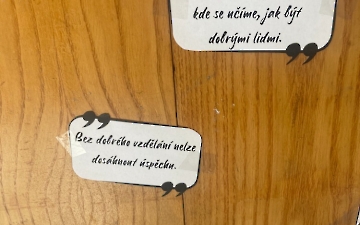 kde se učíme, jak být
dobrými lidmi.
Bez dobrého vzdělání nelze
dosáhnout úspěchu.